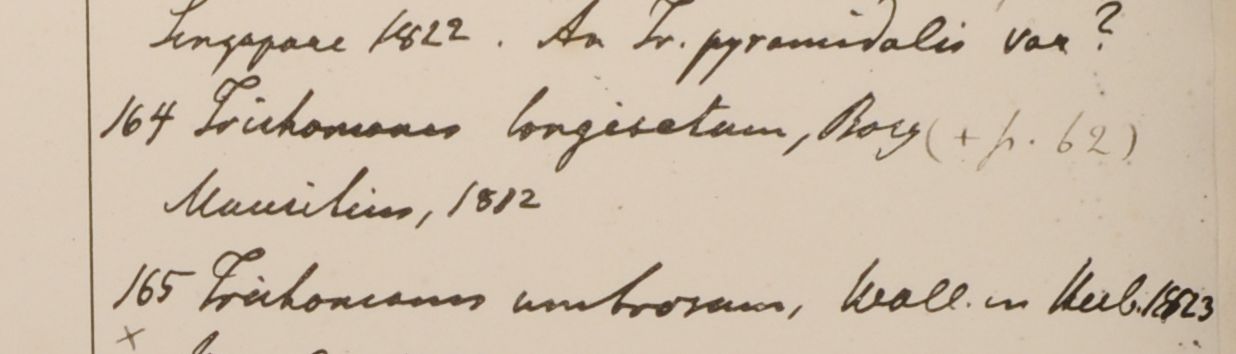 Singapore 1822. An Tr. pyramidalis var?
164 Trichomanes longisetum, Bory (+ p. 62)
Mauritius, 1812
165 Trichomanes umbrosum, Wall. in Herb. 1823
x